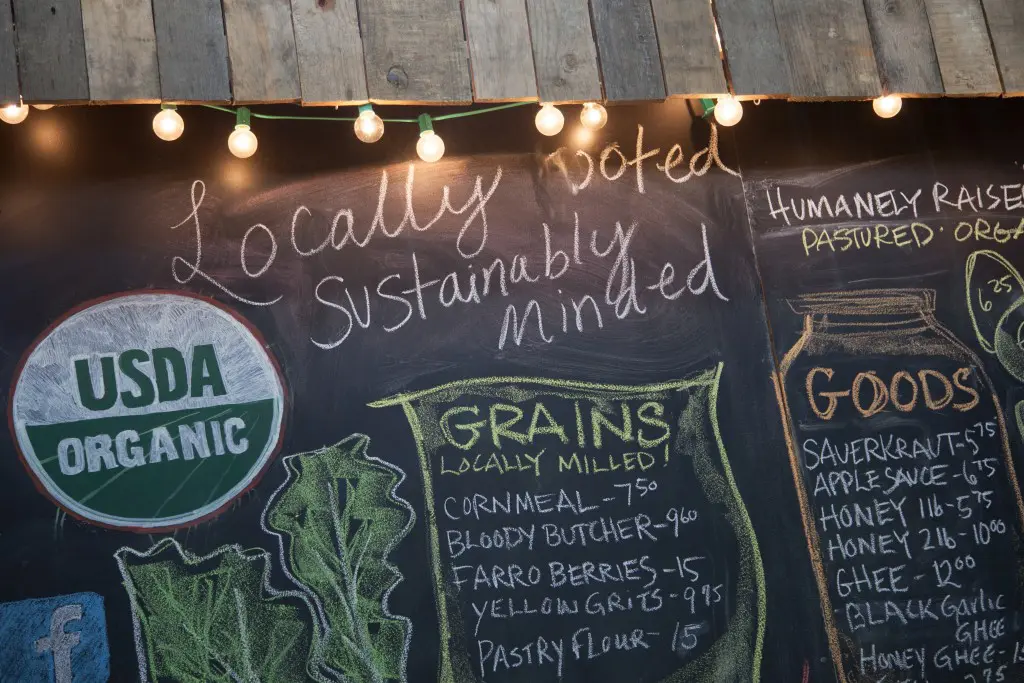 Locally Voted
Sustainably
Minded
USDA
ORGANIC
f
GRAINS
LOCALLY MILLED!
CORNMEAL - 7⁵⁰
BLOODY BUTCHER - 9⁶⁰
FARRO BERRIES - 15
YELLOW GRITS - 9⁷⁵
PASTRY FLOUR - 15
HUMANELY RAISE
PASTURED · ORGA
6²⁵
GOODS
SAUERKRAUT - 5⁷⁵
APPLESAUCE - 6⁷⁵
HONEY 1lb - 5⁷⁵
HONEY 2lb - 10⁰⁰
GHEE - 12⁰⁰
BLACK Garlic
GHEE
HONEY GHEE -